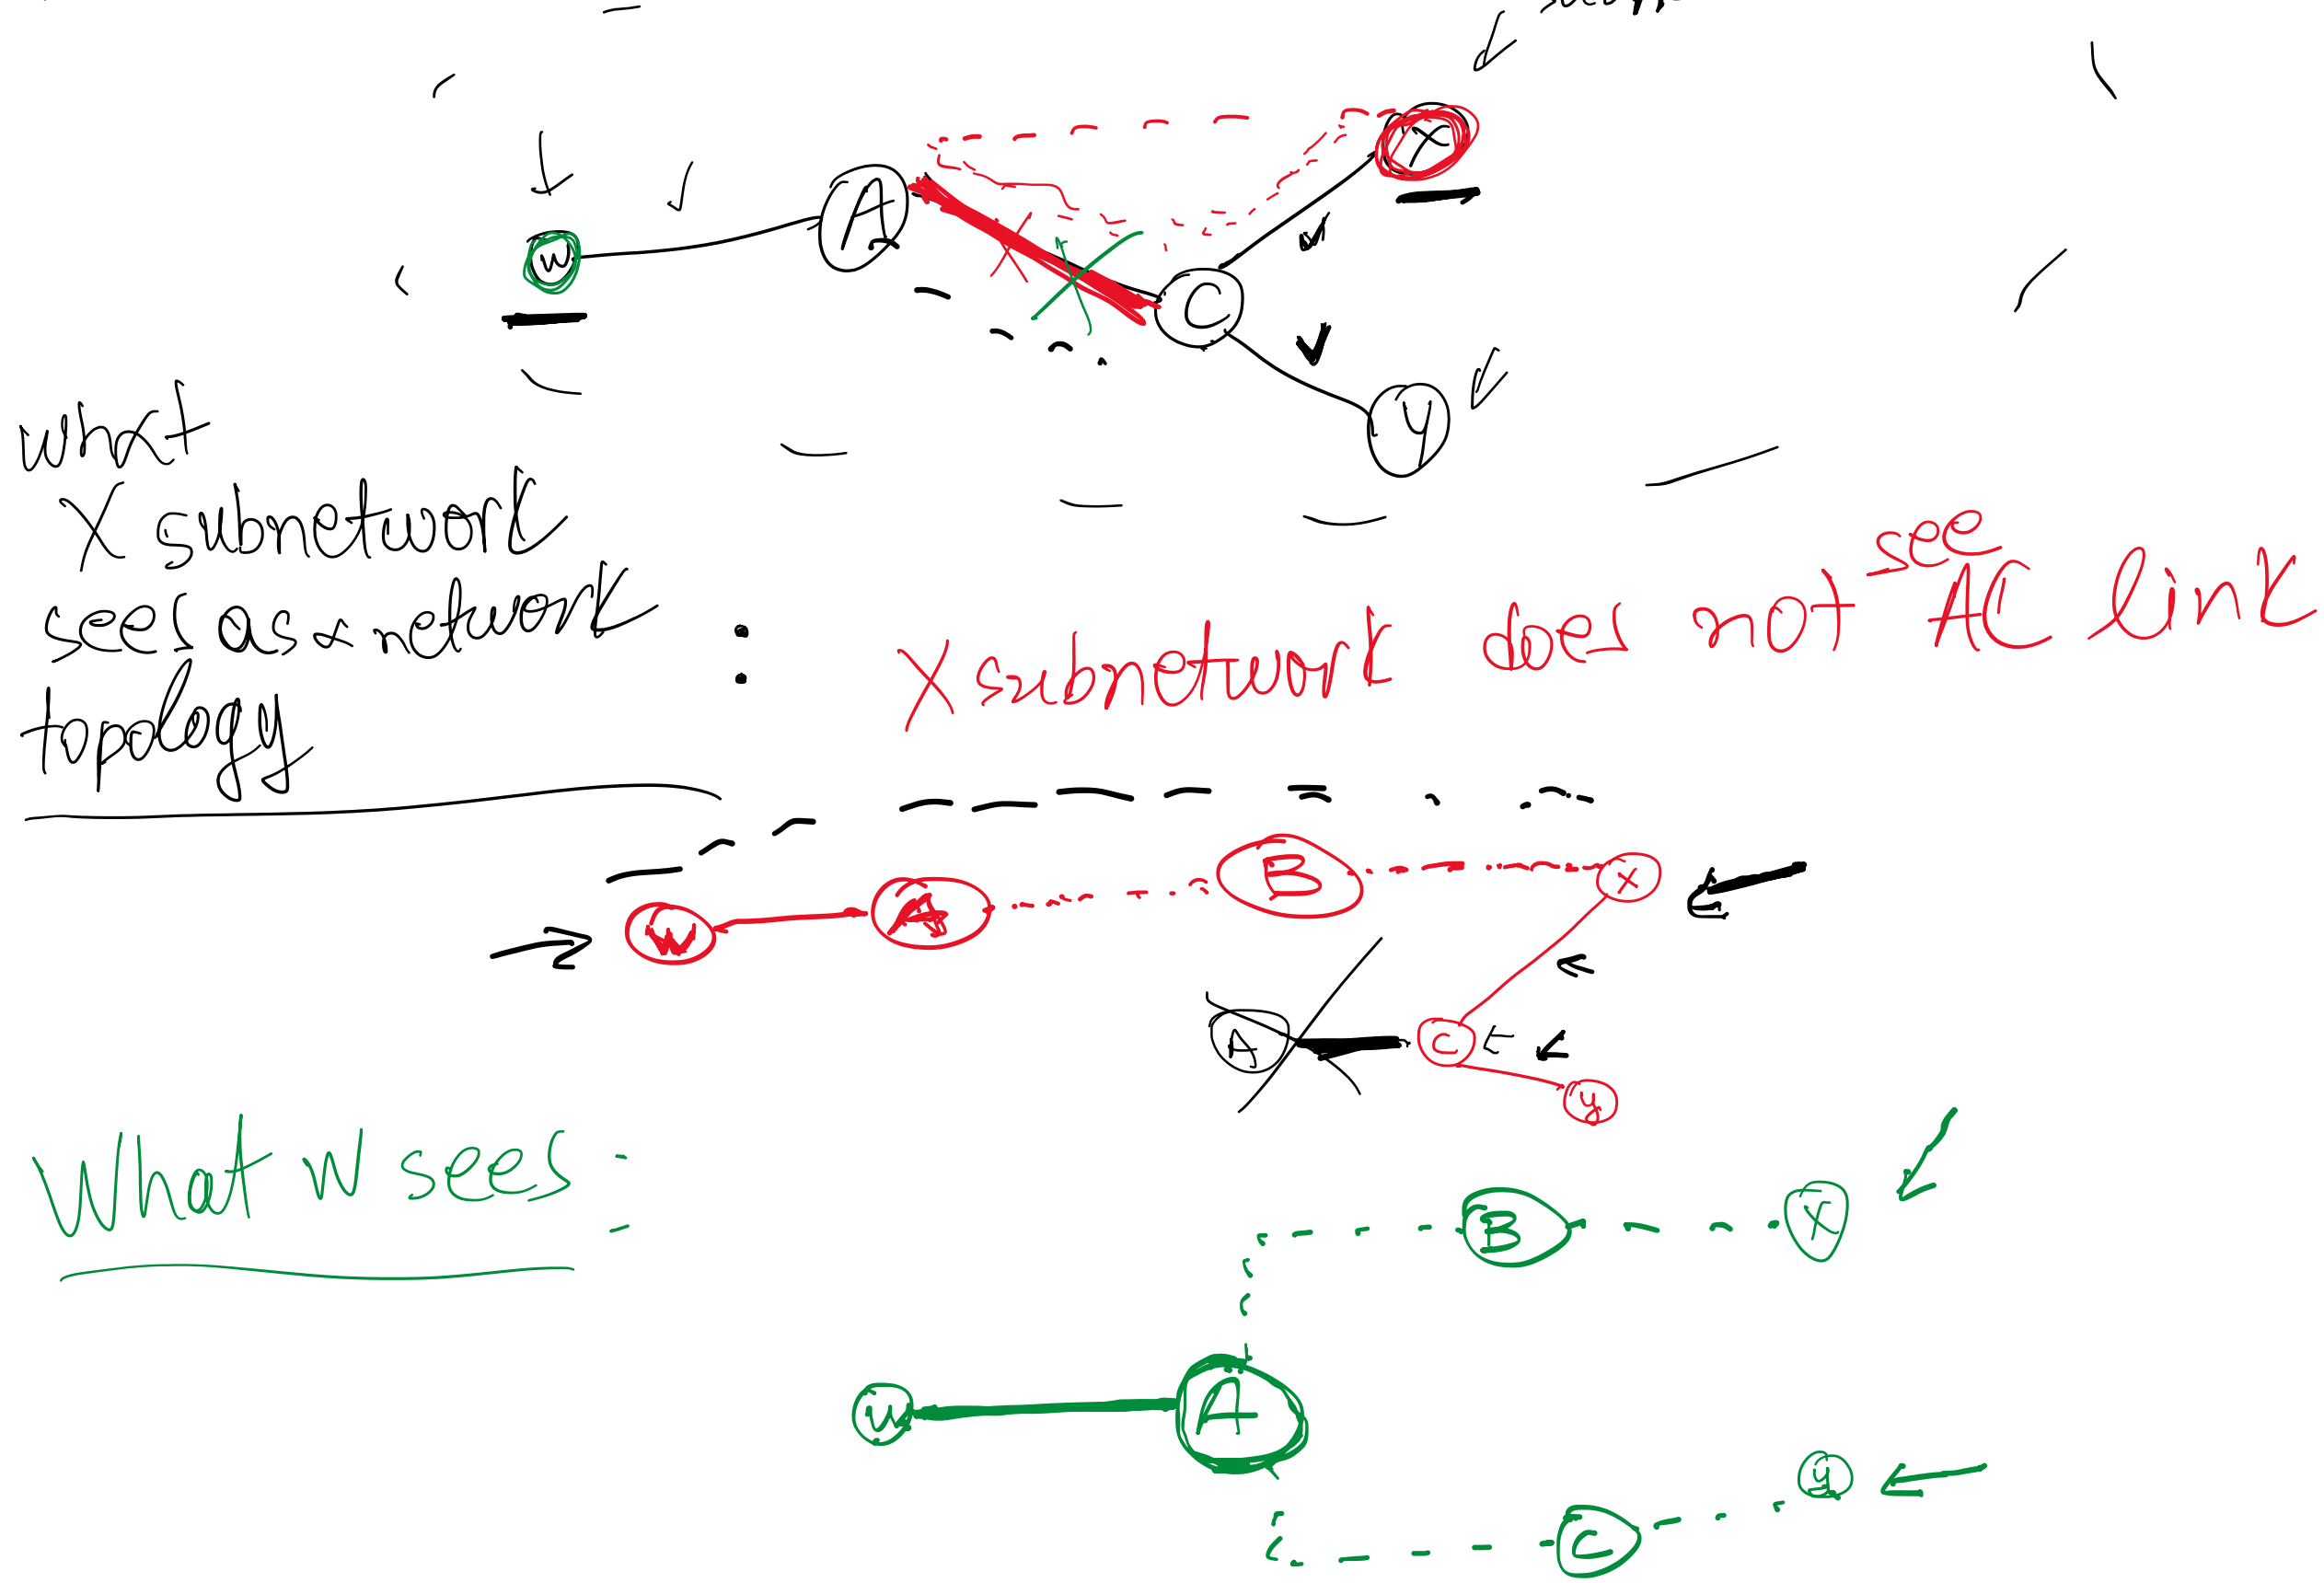 W
A
X
C
y
what
X subnetwork
sees as network
topology
:
X subnetwork does not see AC link
W
A
B
X
A
C
y
What W sees :
B
X
W
A
y
C